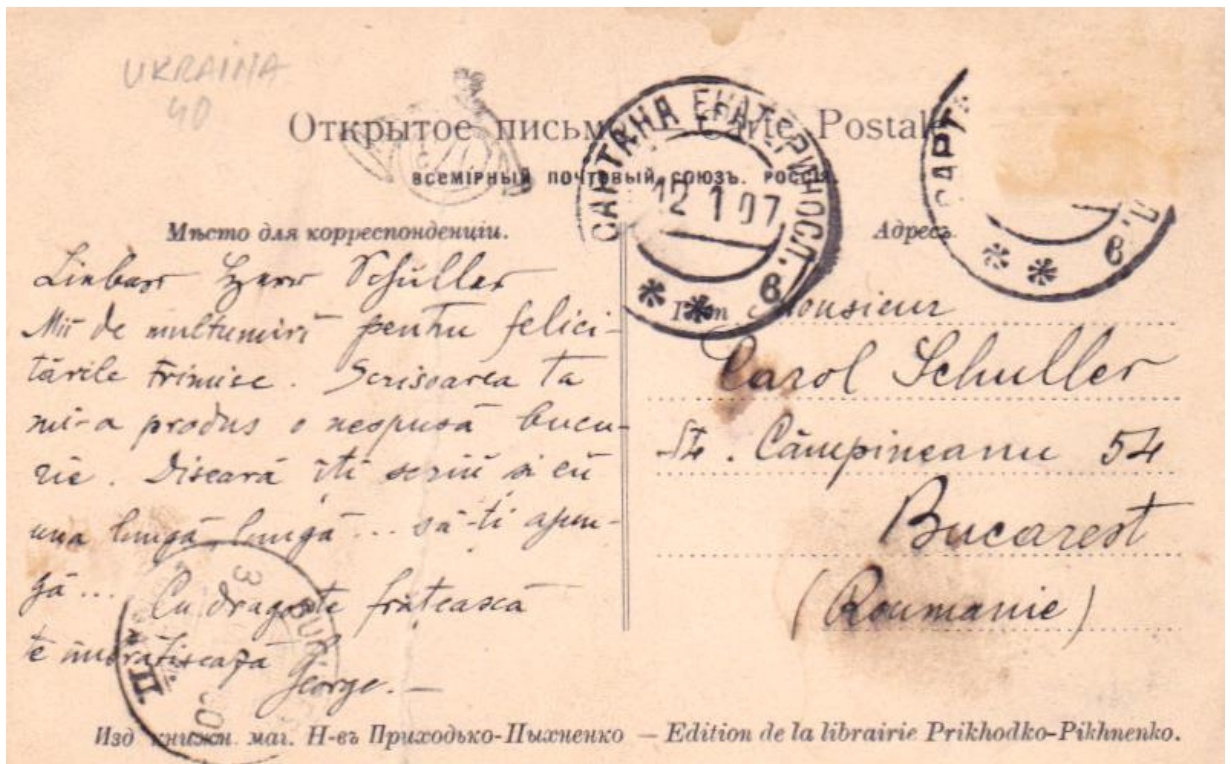 UKRAINA
40
Открытое письмо. — Carte Postale
ВСЕМІРНЫЙ ПОЧТОВЫЙ СОЮЗЪ. РОССІЯ.
САРТАНА ЕКАТЕРИНОСЛ. в.
12 1 07
САРТ
в.
Мѣсто для корреспонденціи.
Lieber Herr Schüller
Mii de multumiri pentru felici-
tările trimise. Scrisoarea ta
mi-a produs o nespusă bucu-
rie. Diseară iti scriu si eu
una lungă, lungă... să-ti ajun-
gă... Cu dragoste frătească
te imbrătisează
George. —
Адресъ.
Monsieur
Carol Schuller
Str. Câmpineanu 54
Bucarest
(Roumanie)
Изд книжн маг. Н-въ Приходько-Пыхненко — Edition de la librairie Prikhodko-Pikhnenko.